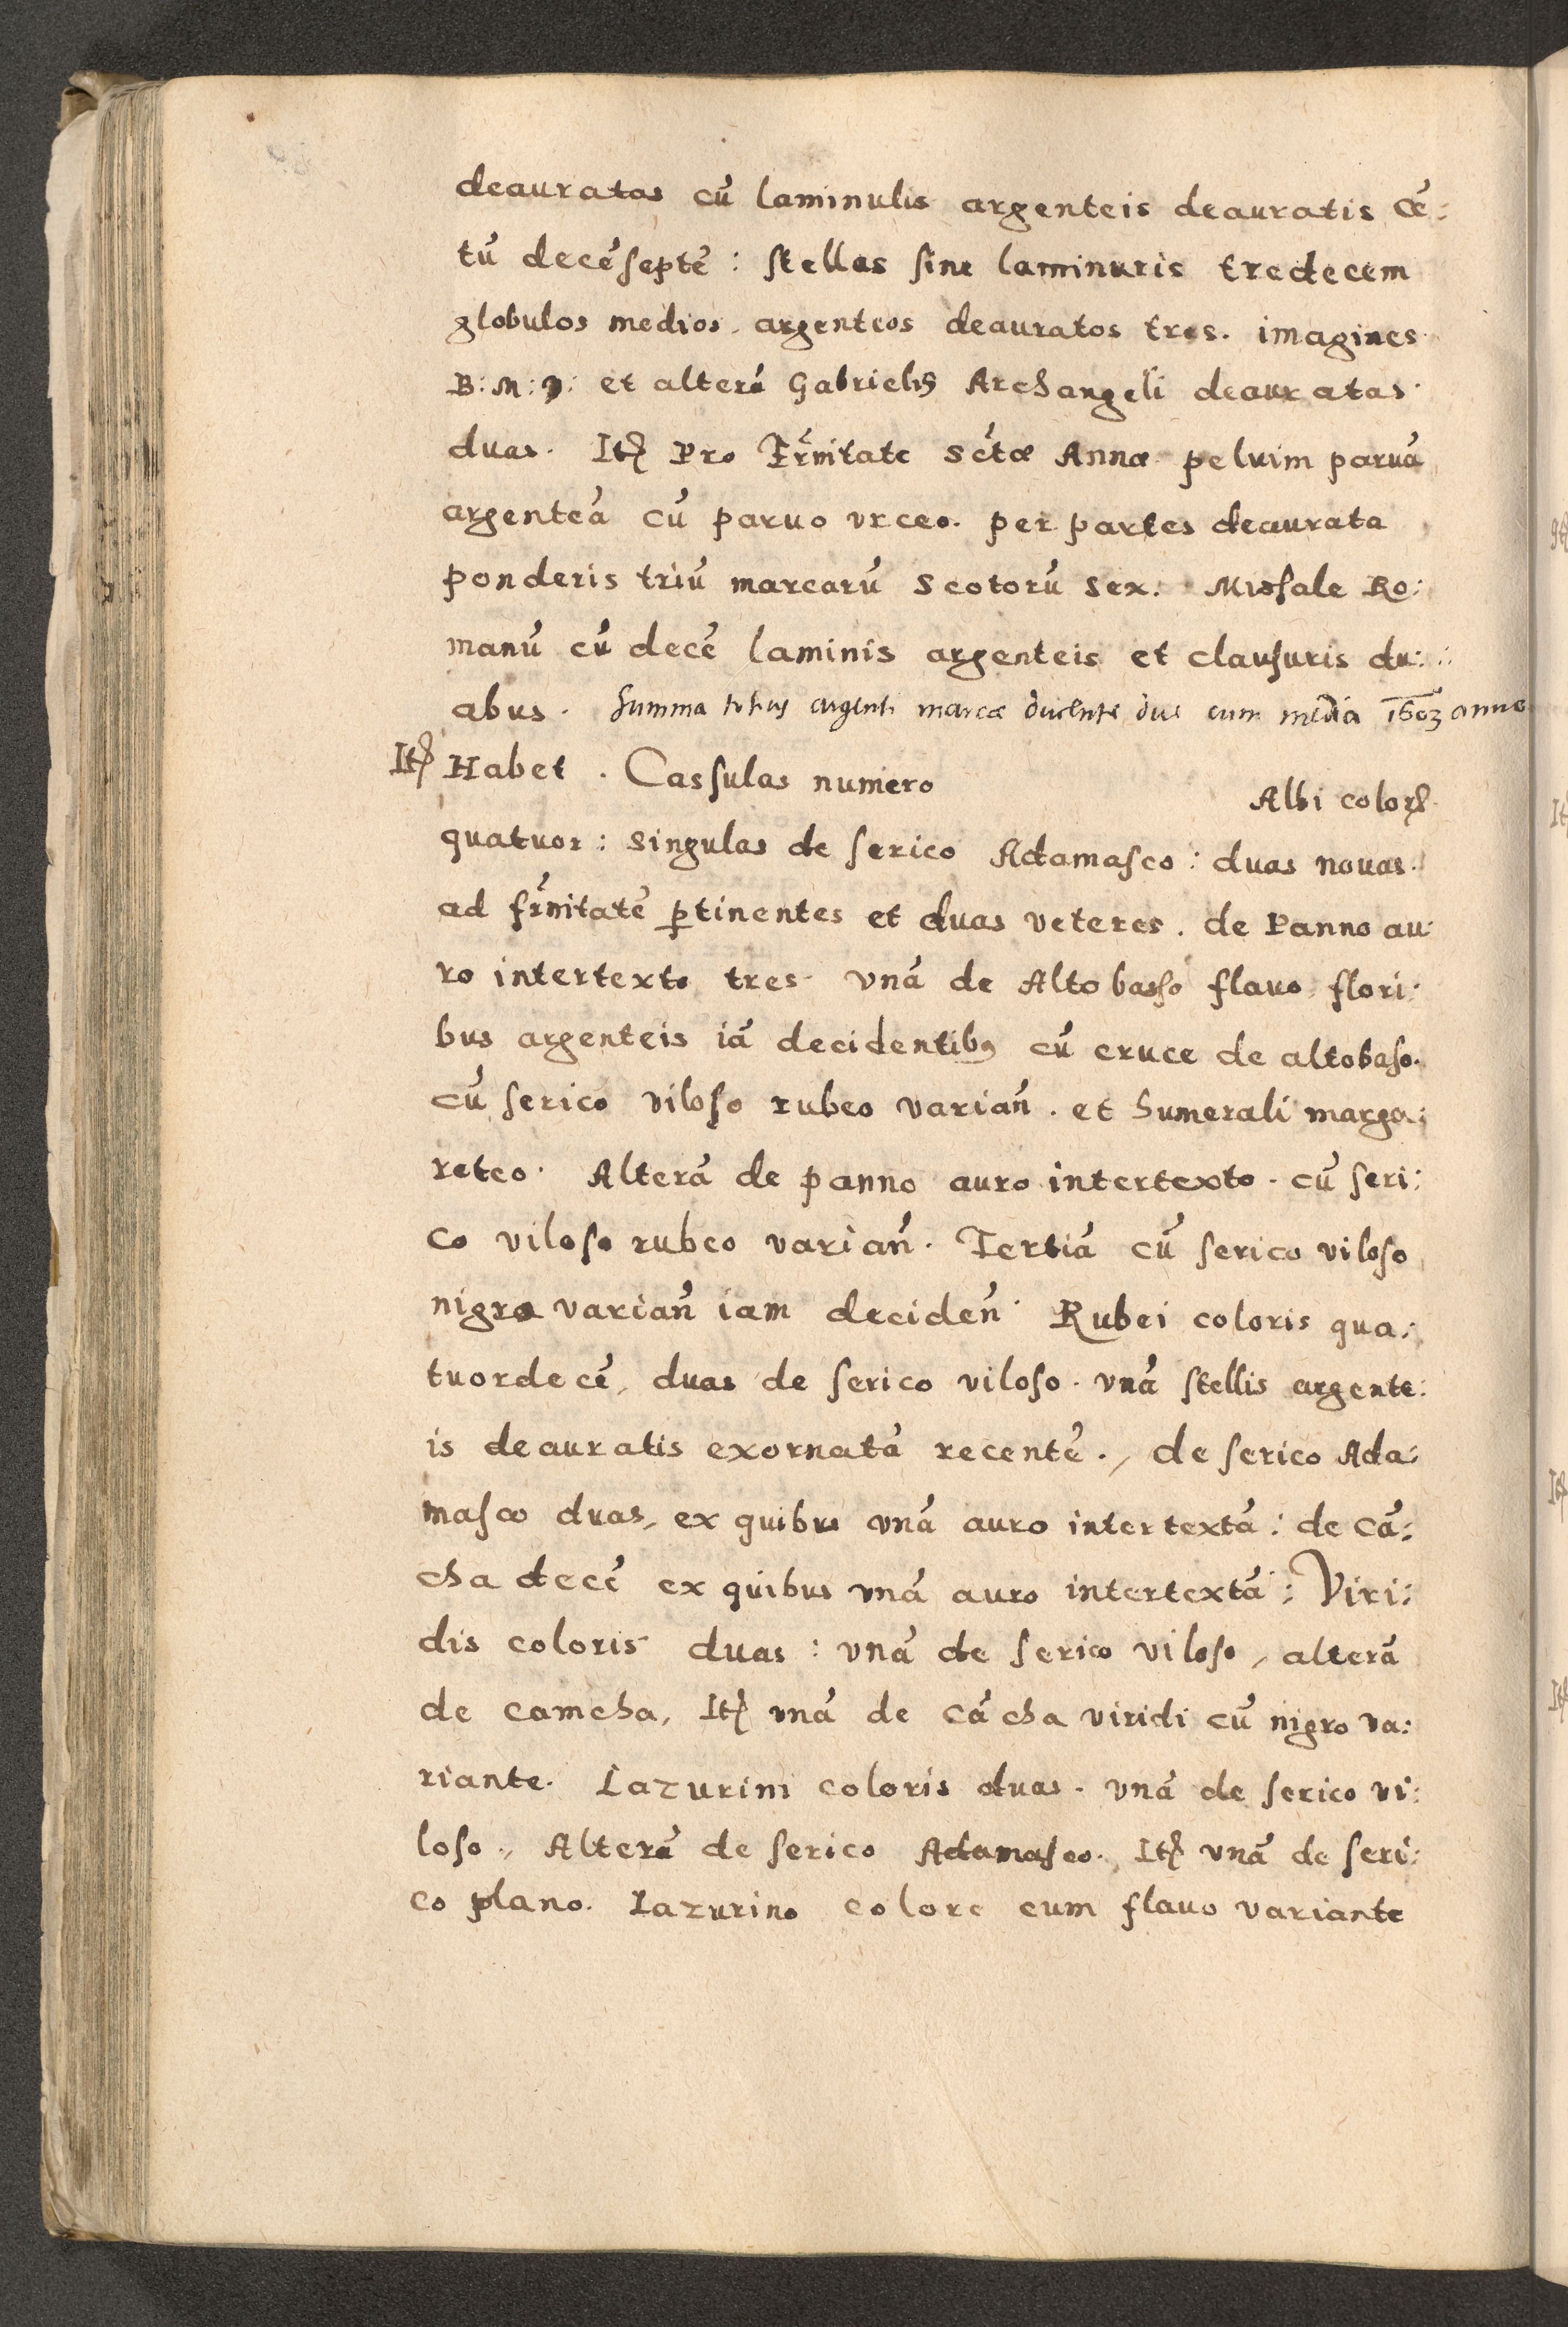 deauratas cū laminulis argenteis deauratis cē:
tū decēſeptē: ſtellas ſine laminuris tredecem
globulos medios, argenteos deauratos tres. imagines
B: M: V: et alterā Gabrielis Archangeli deauratas
duas. Itē Pro Fr̄nitate Sctæ Annæ peluim paruā
argenteā cū paruo vrceo. per partes deaurata
ponderis triū marcarū Scotorū Sex. Miſsale Ro:
manū cū decē laminis argenteis et clauſuris du:
abus. Summa totius argenti marcæ ducente due cum media 1603 anno
Itē Habet. Caſſulas numero Albi coloris
quatuor: singulas de ſerico Adamaſco: duas nouas.
ad fr̄nitatē ꝑtinentes et duas veteres. de Panno au:
ro intertexto tres. vnā de Altobaſſo flauo flori:
bus argenteis iā decidentibꝰ cū cruce de altobaſo.
cū ſerico viloſo rubeo varian̄. et humerali marga:
reteo. Alterā de panno auro intertexto. cū ſeri:
co viloſo rubeo varian̄. Tertiā cū ſerico viloſo
nigro varian̄ iam deciden̄. Rubei coloris qua:
tuordecē, duas de ſerico viloſo. vnā ſtellis argente:
is deauratis exornatā recentē., de ſerico Ada:
maſco duas, ex quibus vnā auro intertextā: de cā:
cha decē ex quibus vnā auro intertextā: Viri:
dis coloris duas: vnā de ſerico viloſo, alterā
de camcha, Itē vnā de cācha viridi cū nigro va:
riante. Lazurini coloris duas. vnā de ſerico vi:
loſo., Alterā de ſerico Adamaſco., Itē vnā de ſeri:
co plano. Lazurino colore cum flauo variante